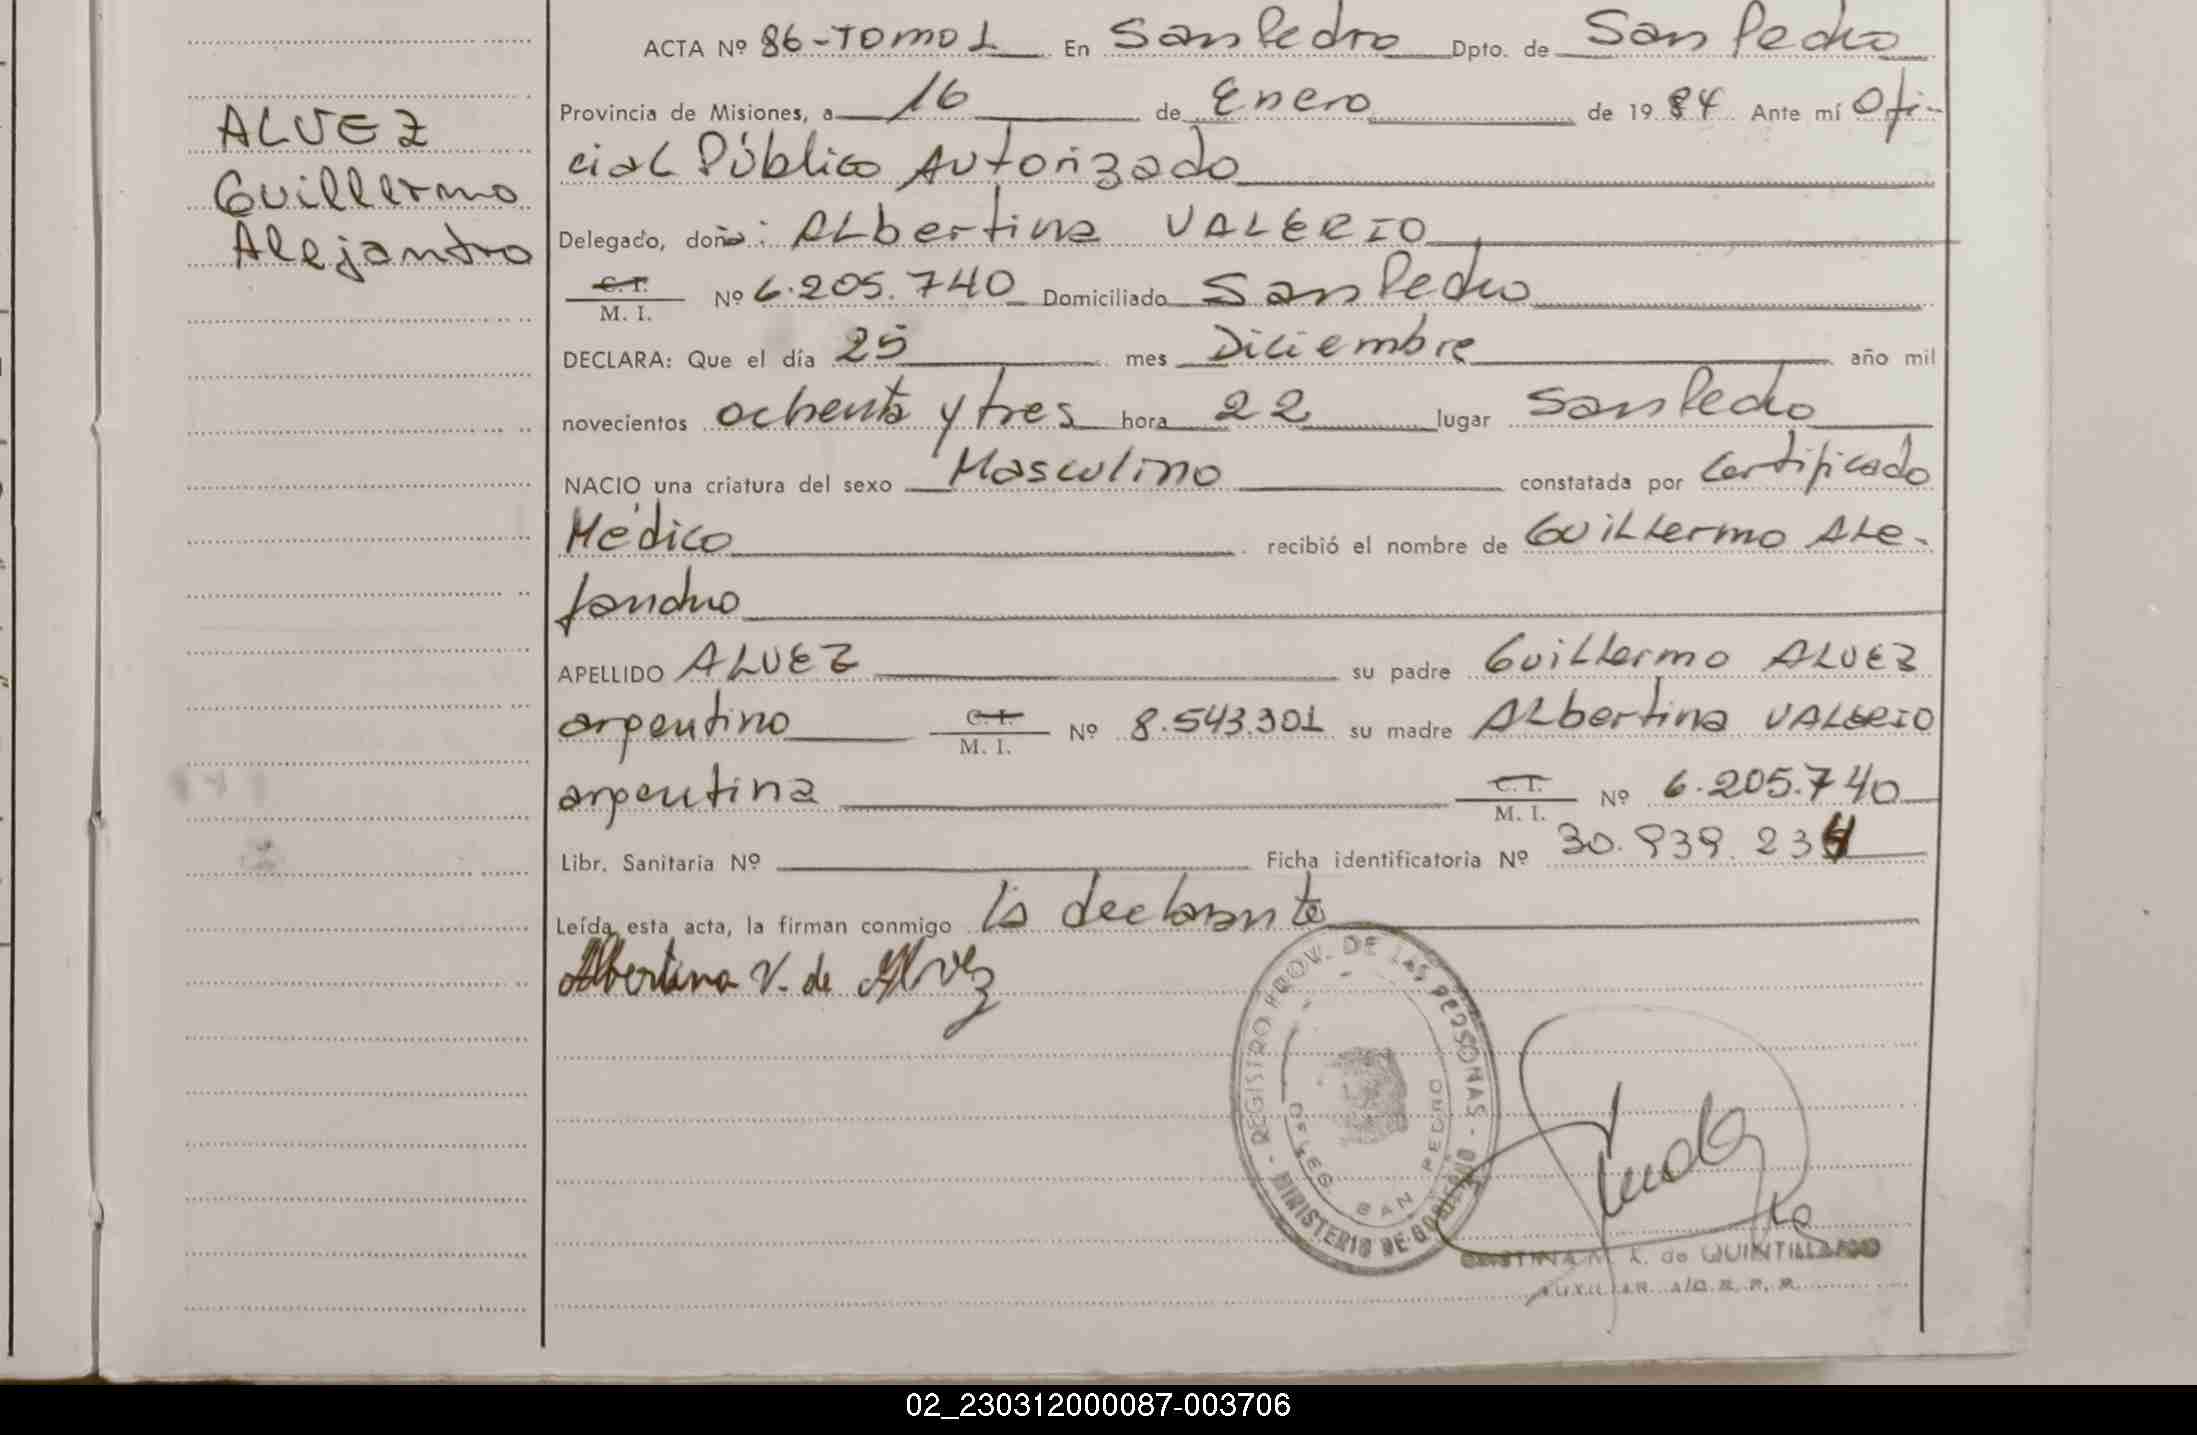 ALVEZ
Guillermo
Alejandro
ACTA Nº 86-TOMO 1 En San Pedro Dpto. de San Pedro
Provincia de Misiones, a 16 de Enero de 1984 Ante mí Ofi-
cial Público Autorizado
Delegado, doña: Albertina VALERIO
C.I. M. I. Nº 6.205.740 Domiciliado San Pedro
DECLARA: Que el día 25 mes Diciembre año mil
novecientos ochenta y tres hora 22 lugar San Pedro
NACIO una criatura del sexo Masculino constatada por Certificado
Médico recibió el nombre de Guillermo Ale-
jandro
APELLIDO ALVEZ su padre Guillermo ALVEZ
argentino C.I. M. I. Nº 8.543.301 su madre Albertina VALERIO
argentina C.I. M. I. Nº 6.205.740
Libr. Sanitaria Nº Ficha identificatoria Nº 30.939.234
Leída esta acta, la firman conmigo la declarante
Albertina V. de Alvez
REGISTRO PROV. DE LAS PERSONAS - MINISTERIO DE GOBIERNO -
DELEG. SAN PEDRO
CRISTINA M. K. de QUINTILLANO
AUXILIAR A/O. R. P. P.
02_230312000087-003706